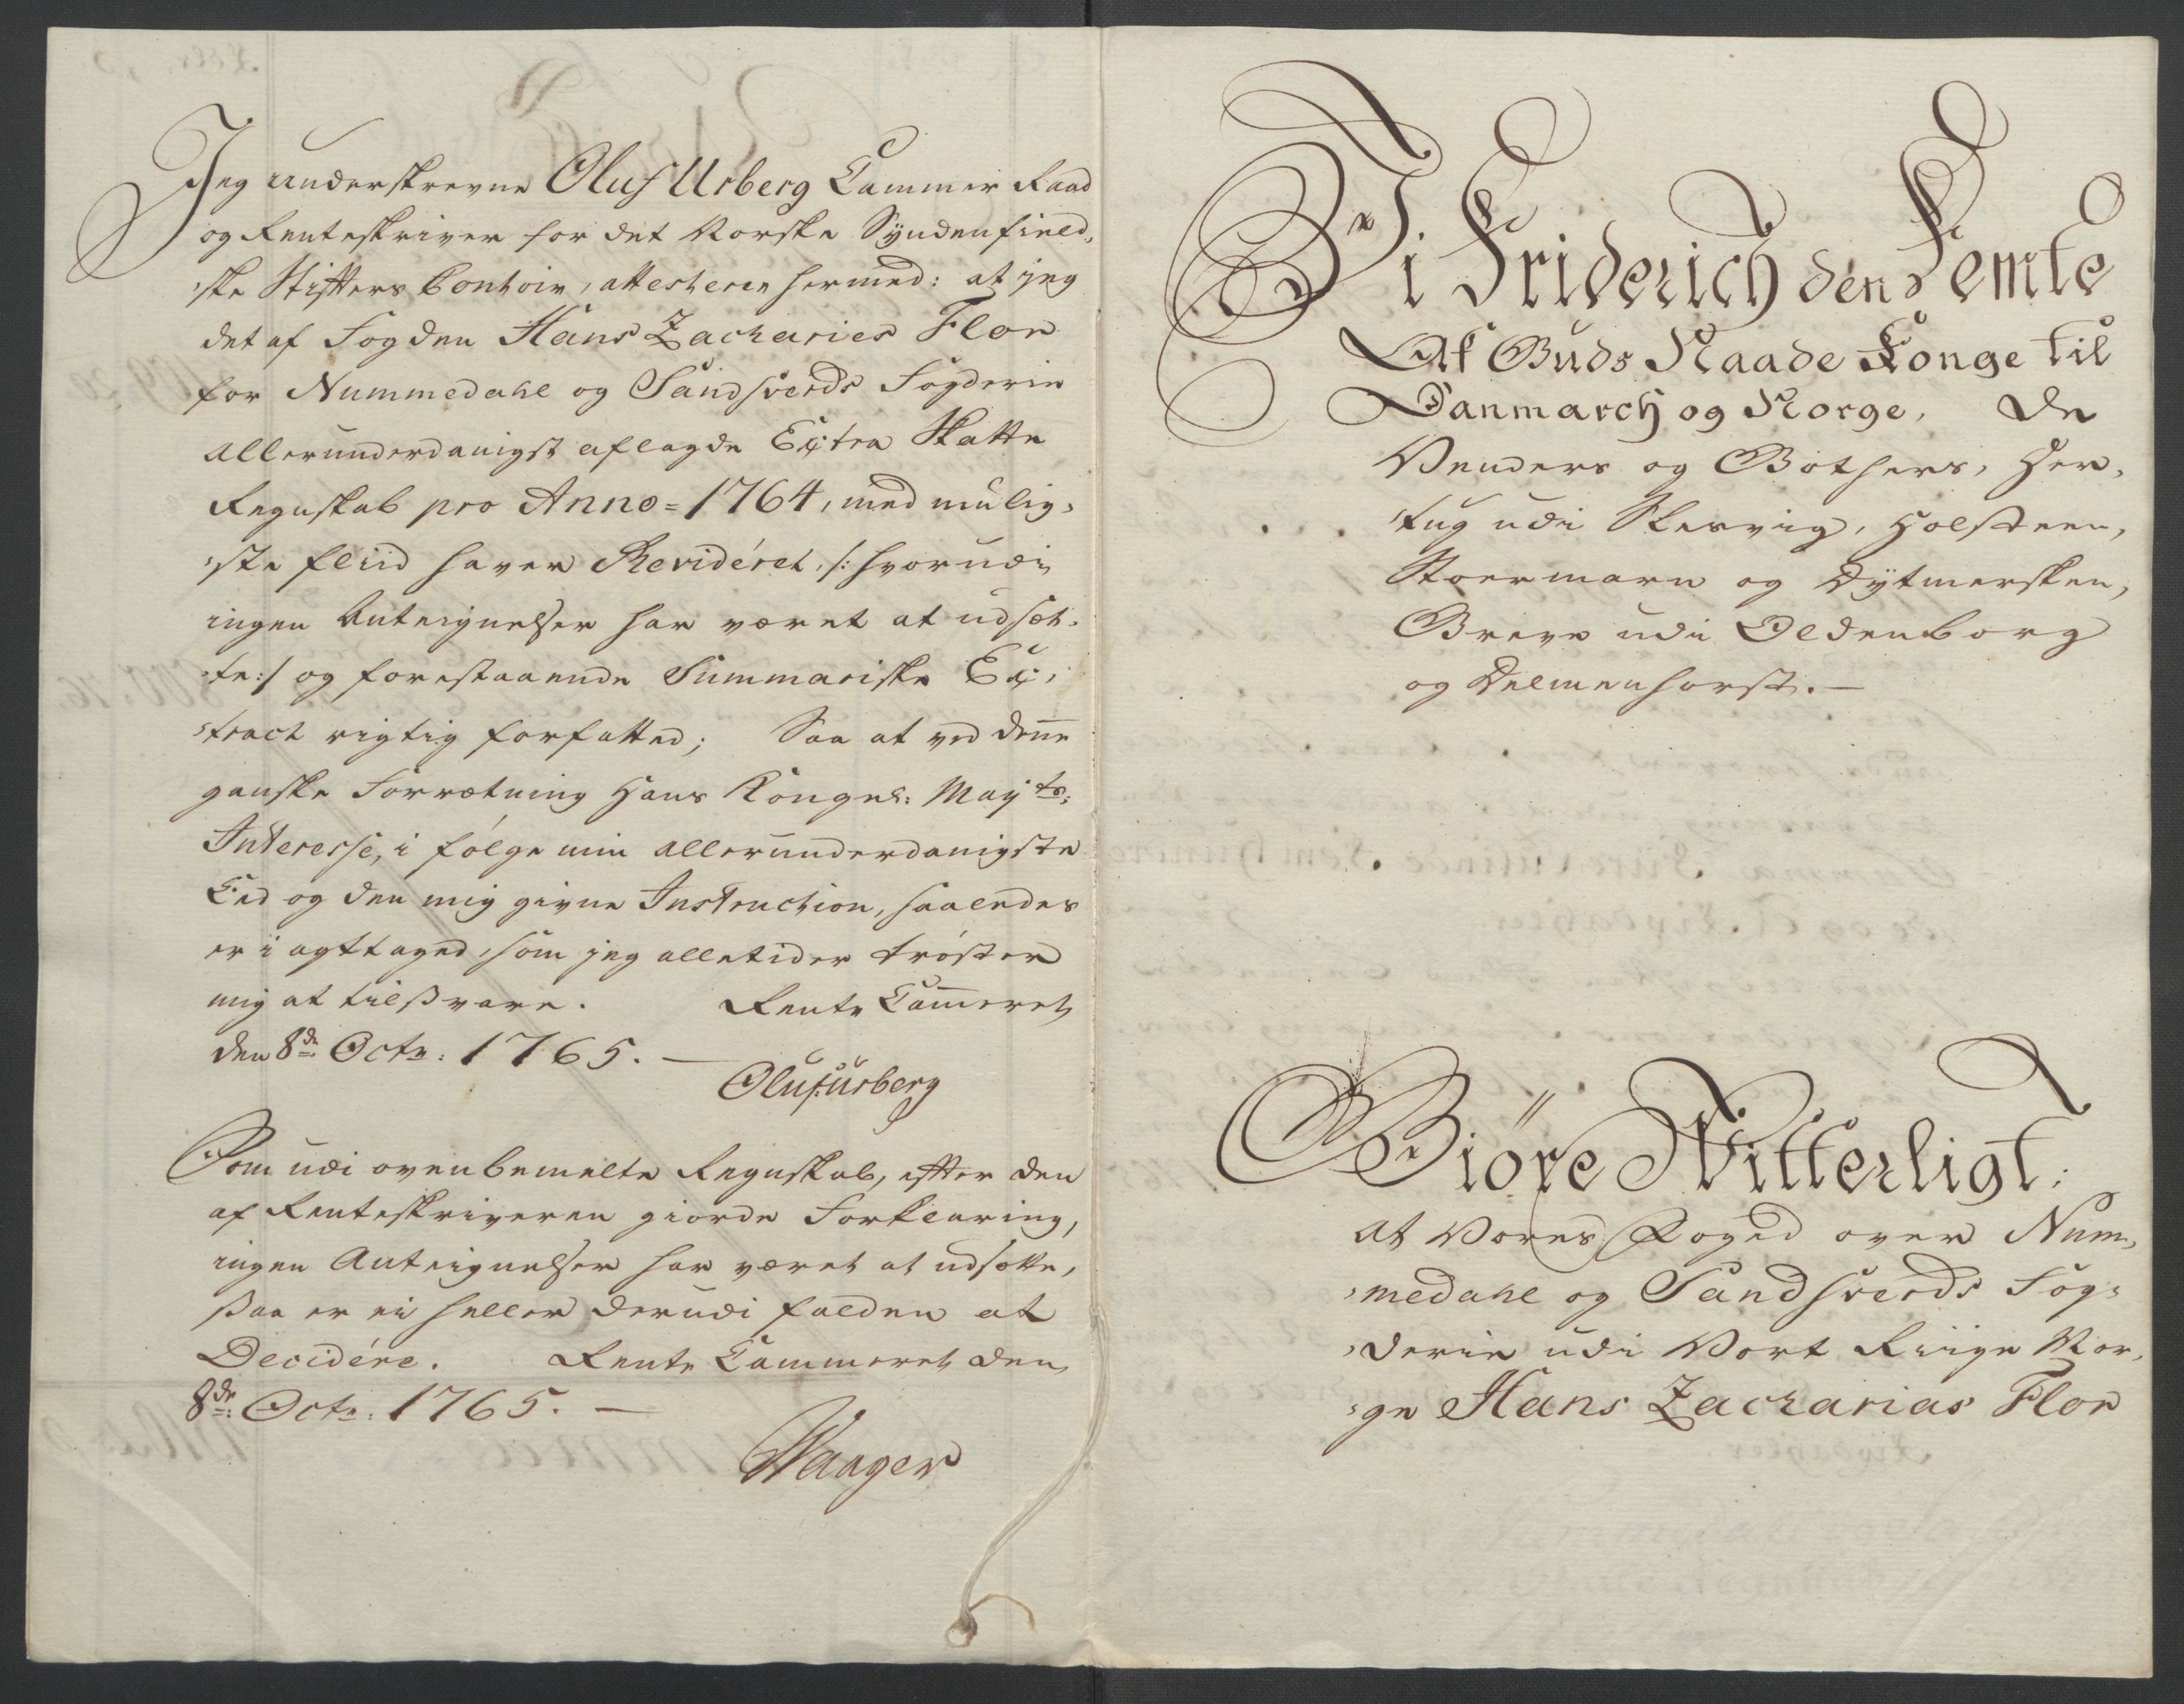 Jeg underskrevne Oluf Urberg Cammer Raad
og Renteskriver for det Norske Syndenfield,
ske Stifters Contoir, attesterer hermed: at jeg
det af Fogden Hans Zacharies Flor
for Nummedahl og Sandsverds Fogderie
allerunderdanigst aflagde Extra Skatte
Regnskab pro Anno=1764, med mulig,
ste fliid haver Revidéret, /: hvorudi
ingen Anteignelser har været at udsæt,
te:/ og forestaaende Summariske Ex,
tract rigtig forfatted; Saa at ved denne
ganske Forrætning Hans Kongel: Mayts:
Interesse, i følge min allerunderdanigste
Eed og den mig givne Instruction, saaledes
er i agttaged, som jeg alletider trøster
mig at tilsvare. Rente Cammeret
den 8de Octr: 1765. —
Oluf Urberg
Som udi ovenbemelte Regnskab, efter den
af Renteskriveren giorde Forklaring,
ingen Anteignelser har været at udsætte,
saa er ei heller derudi falden at
Decidére. Rente Cammeret den
8de Octr: 1765. —
Waager
Vi Friderich den Femte
Af Guds Naade Konge til
Danmarch og Norge, De
Venders og Gothers, Her,
tug udi Slesvig, Holsteen,
Stoermarn og Dytmersken,
Greve udi Oldenborg
og Delmenhorst. —
Giöre Vitterligt:
At Vores Foged over Num,
medahl og Sandsverds Fog,
derie udi Vort Riige Nor,
ge Hans Zacharias Flor